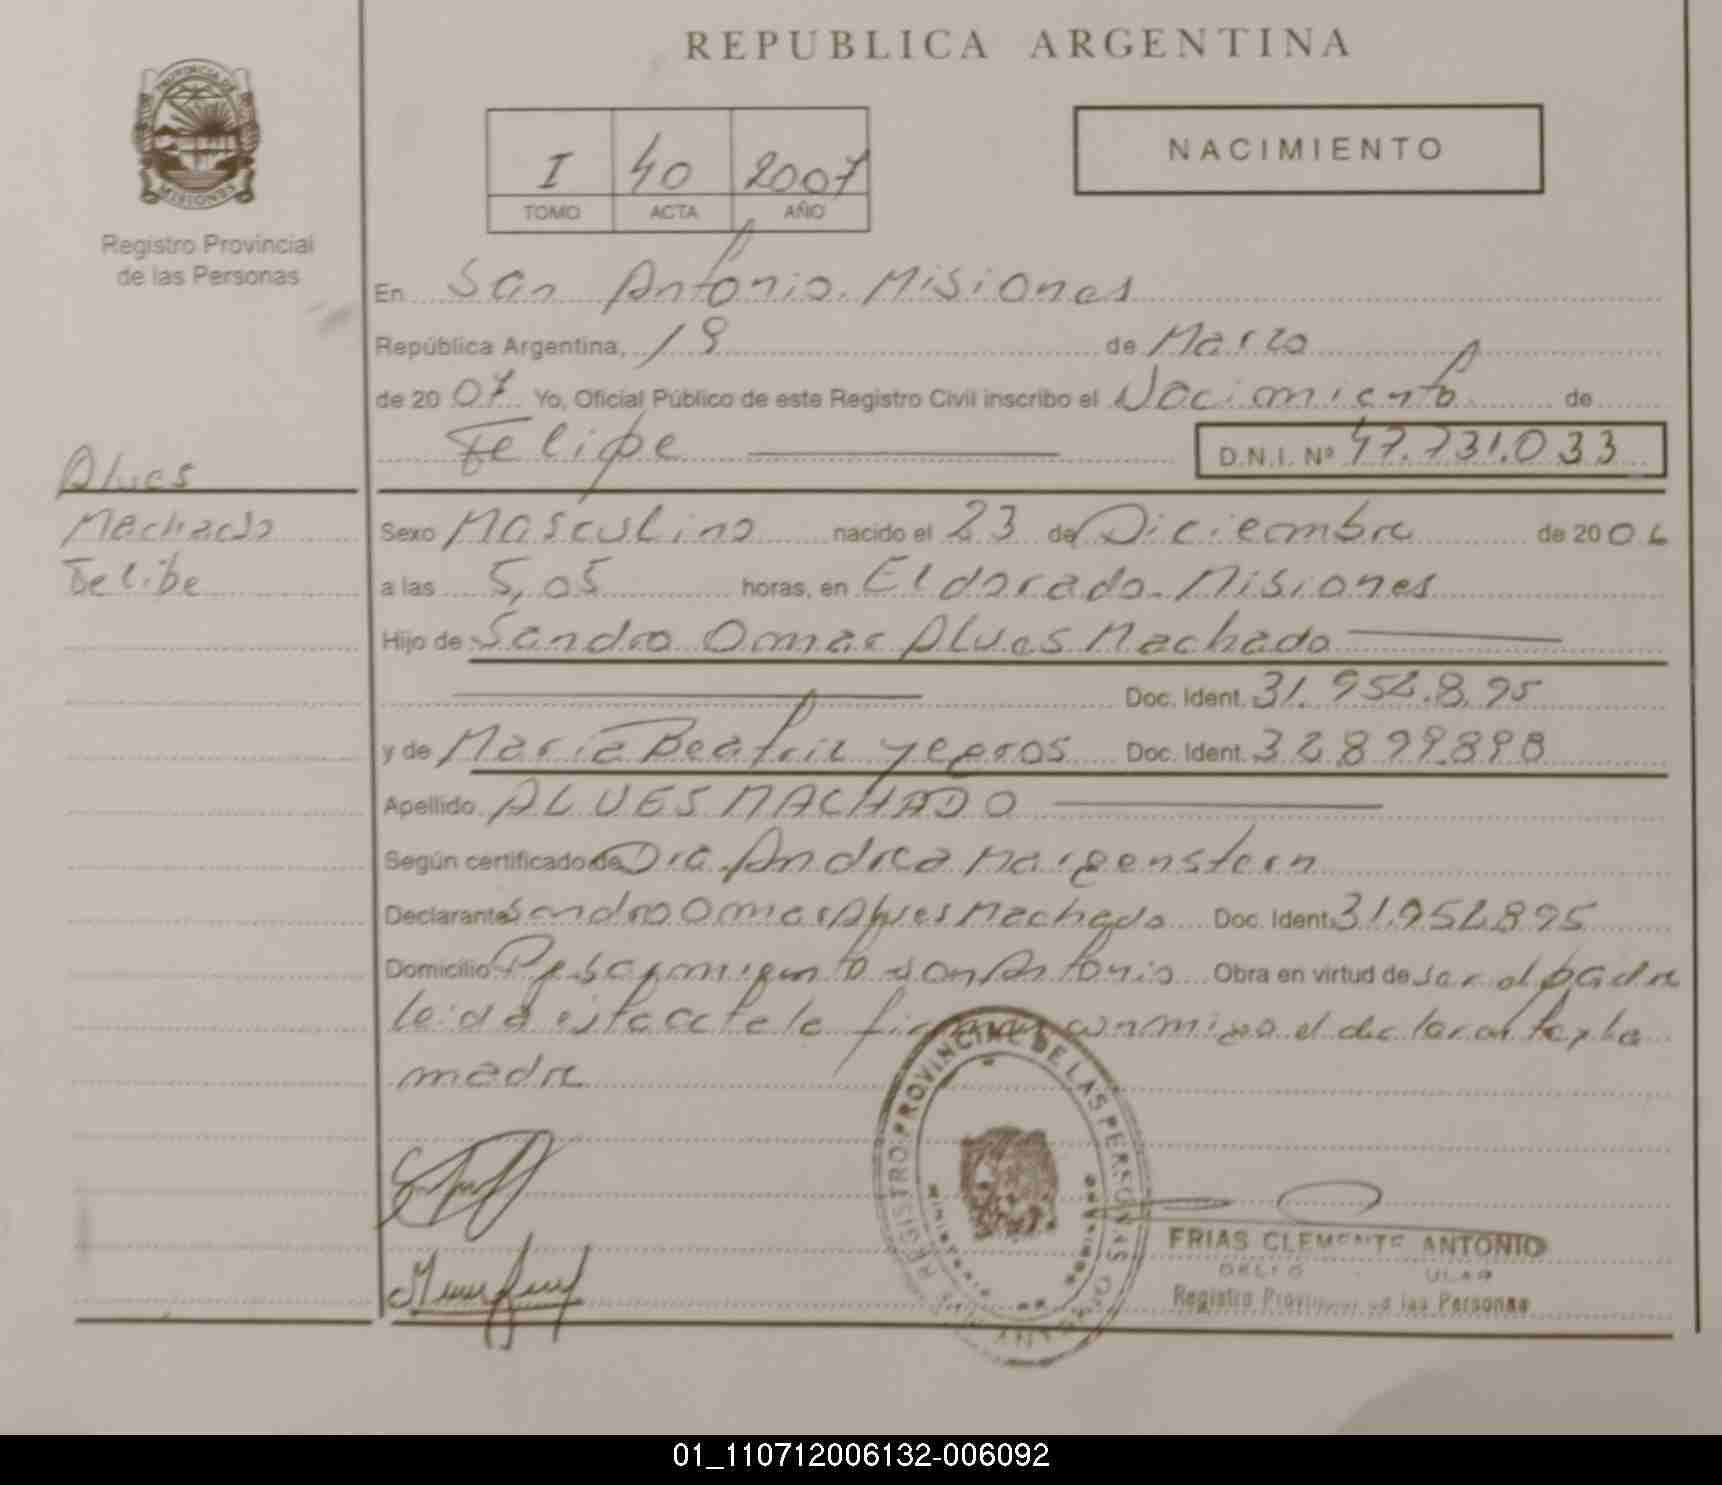 REPUBLICA ARGENTINA
PROVINCIA DE
MISIONES
Registro Provincial
de las Personas
I 40 2007
TOMO ACTA AÑO
NACIMIENTO
En San Antonio. Misiones
República Argentina, 19 de Marzo
de 2007 Yo, Oficial Público de este Registro Civil inscribo el Nacimiento de
Felipe D.N.I. Nº 47.731.033
Alves
Machado
Felipe
Sexo Masculino nacido el 23 de Diciembre de 2006
a las 5,05 horas, en Eldorado. Misiones
Hijo de Sandro Omar Alves Machado
Doc. Ident. 31.952.895
y de Maria Beatriz Yegros Doc. Ident. 32899898
Apellido ALVES MACHADO
Según certificado de Dra. Andrea Morgenstern
Declarante Sandro Omar Alves Machado Doc. Ident. 31.952895
Domicilio San Antonio Obra en virtud de ser el padre
leida esta acta la firman conmigo el declarante y la
madre
REGISTRO PROVINCIAL DE LAS PERSONAS
FRIAS CLEMENTE ANTONIO
Registro las Personas
01_110712006132-006092